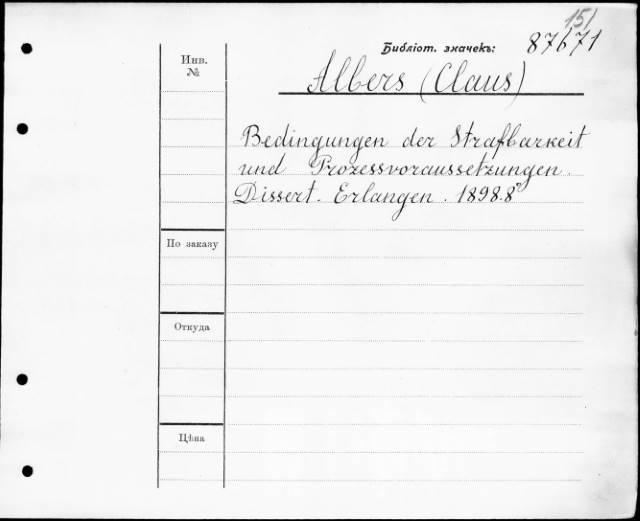 151
Библіот. значекъ: 87671
Инв.
№
Albers (Claus)
Bedingungen der Strafbarkeit
und Prozessvoraussetzungen.
Dissert. Erlangen. 1898. 8°
По заказу
Откуда
Цѣна